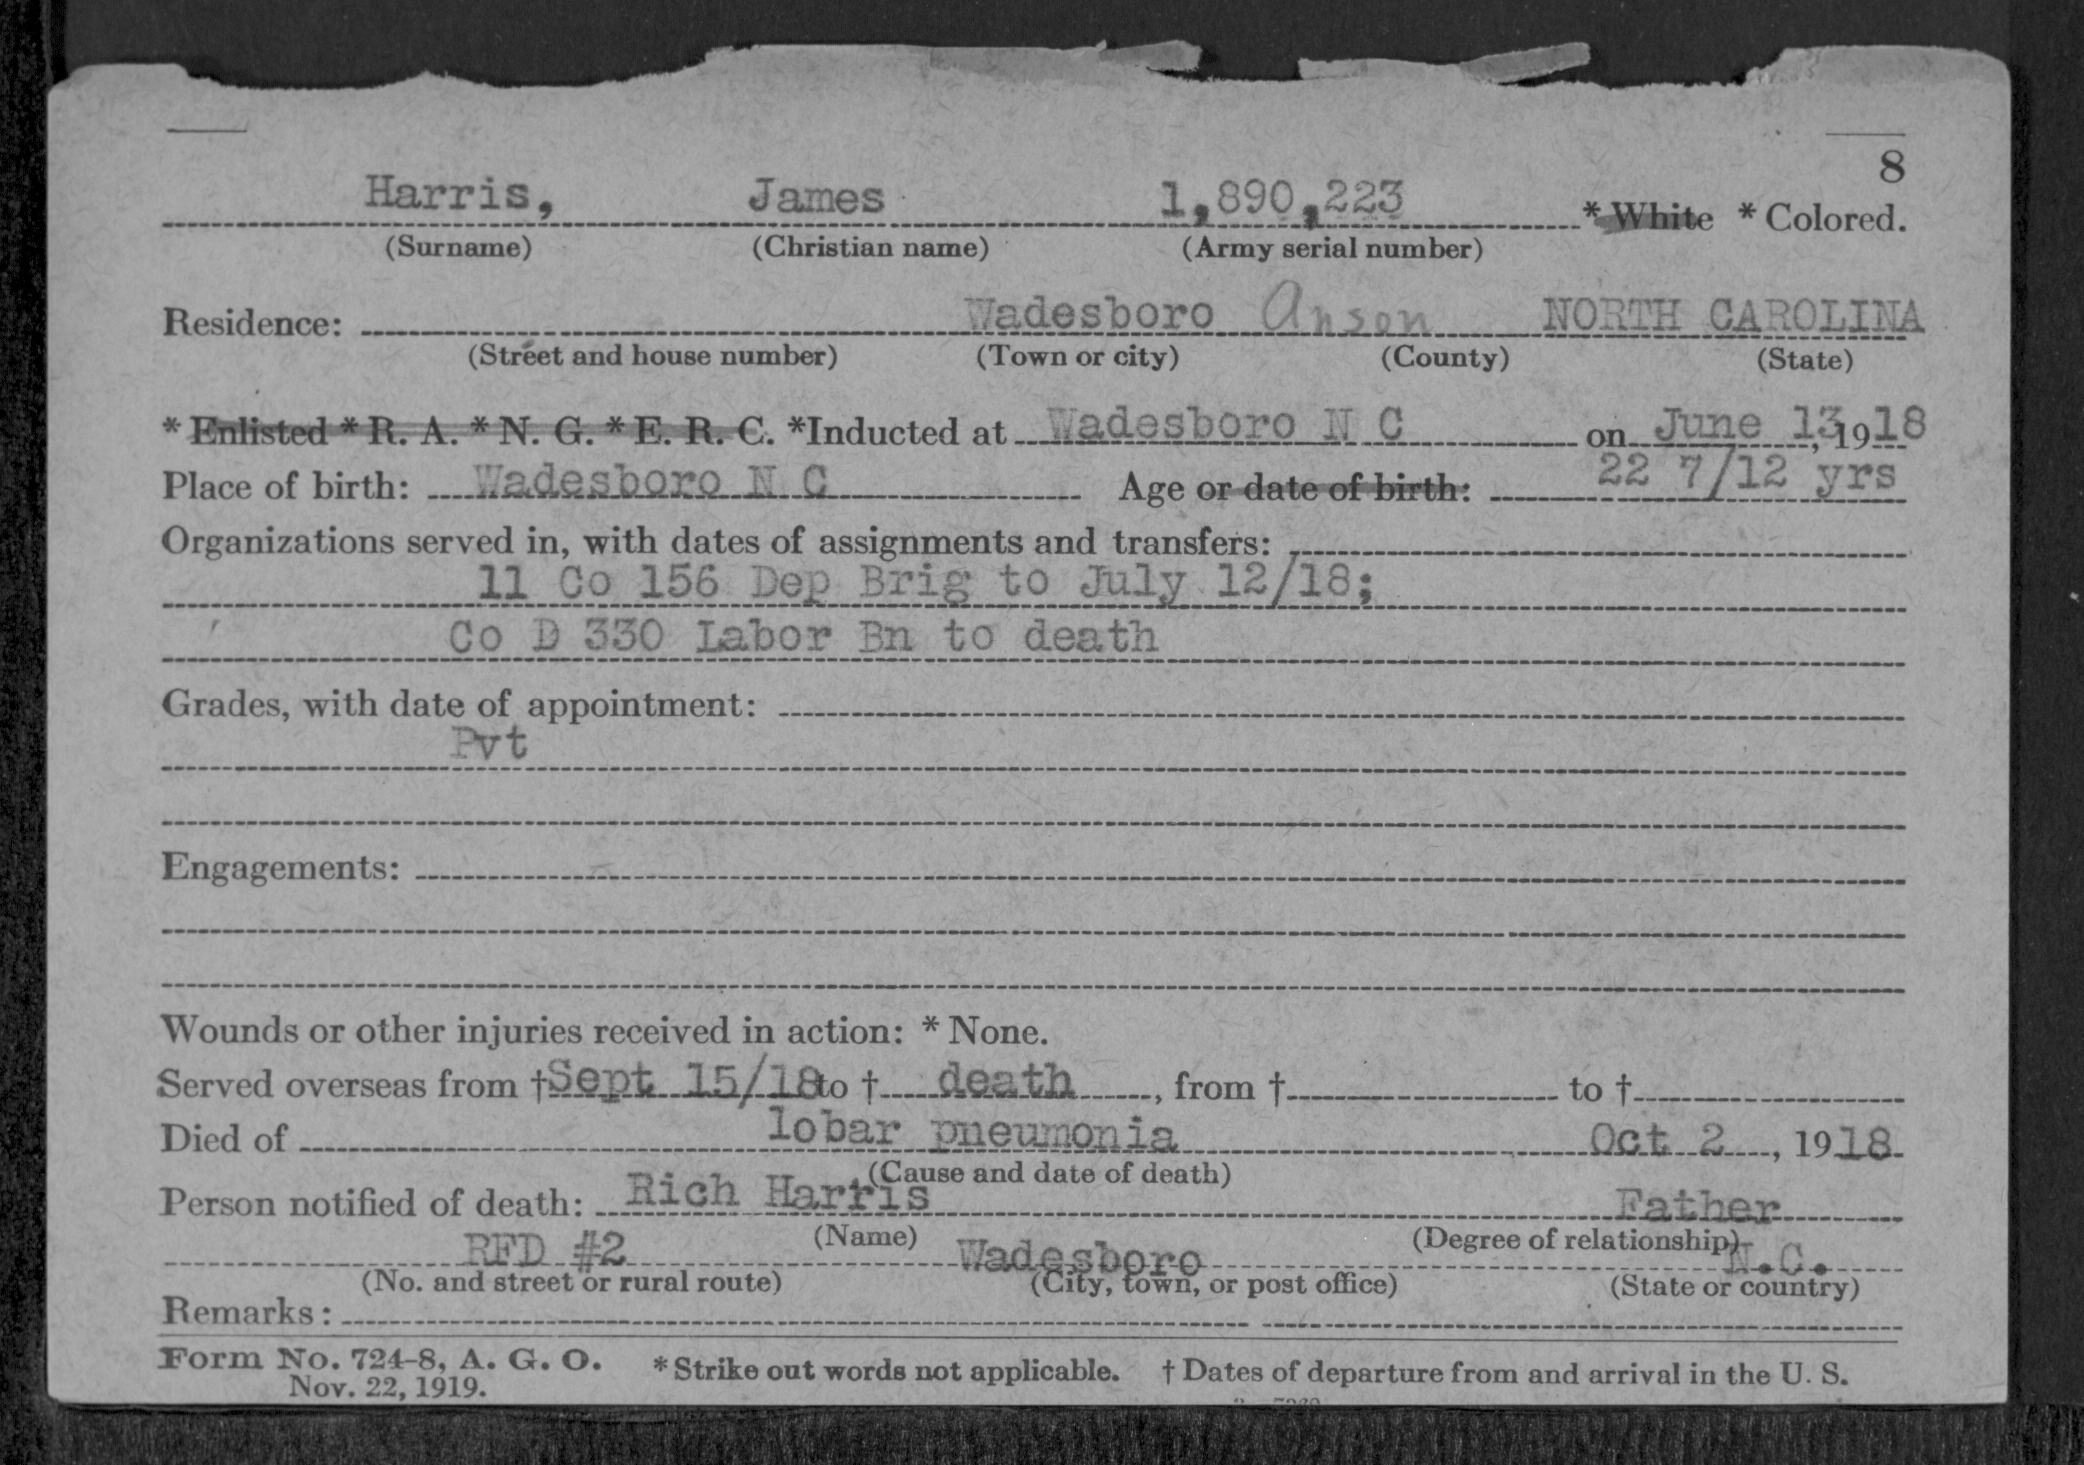 8
Harris, James 1,890,223 * White * Colored.
(Surname) (Christian name) (Army serial number)
Residence: Wadesboro Anson NORTH CAROLINA
(Street and house number) (Town or city) (County) (State)
* Enlisted * R. A. * N. G. * E. R. C. *Inducted at Wadesboro N C on June 13, 1918
Place of birth: Wadesboro N C Age or date of birth: 22 7/12 yrs
Organizations served in, with dates of assignments and transfers:
11 Co 156 Dep Brig to July 12/18;
Co D 330 Labor Bn to death
Grades, with date of appointment:
Pvt
Engagements:
Wounds or other injuries received in action: * None.
Served overseas from † Sept 15/18 to † death, from † to †
Died of lobar pneumonia Oct 2, 1918
(Cause and date of death)
Person notified of death: Rich Harris Father
(Name) (Degree of relationship)
RFD #2 Wadesboro N.C.
(No. and street or rural route) (City, town, or post office) (State or country)
Remarks:
Form No. 724-8, A. G. O. * Strike out words not applicable. † Dates of departure from and arrival in the U. S.
Nov. 22, 1919.